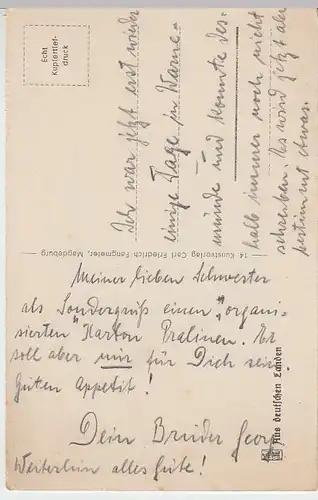 Echt
Kupfertief-
druck
Ich war jetzt erst wieder
einige Tage in Warne-
münde und konnte des-
halb immer noch nicht
schreiben. Es wird jetzt aber
bestimmt etwas.
14 Kunstverlag Carl Friedrich Fangmeier, Magdeburg
Meiner lieben Schwester
als Sondergruß einen „organi-
sierten" Karton Pralinen. Er
soll aber nur für Dich sein.
Guten Appetit!
Dein Bruder Georg
Weiterhin alles Gute!
Aus deutschen Landen